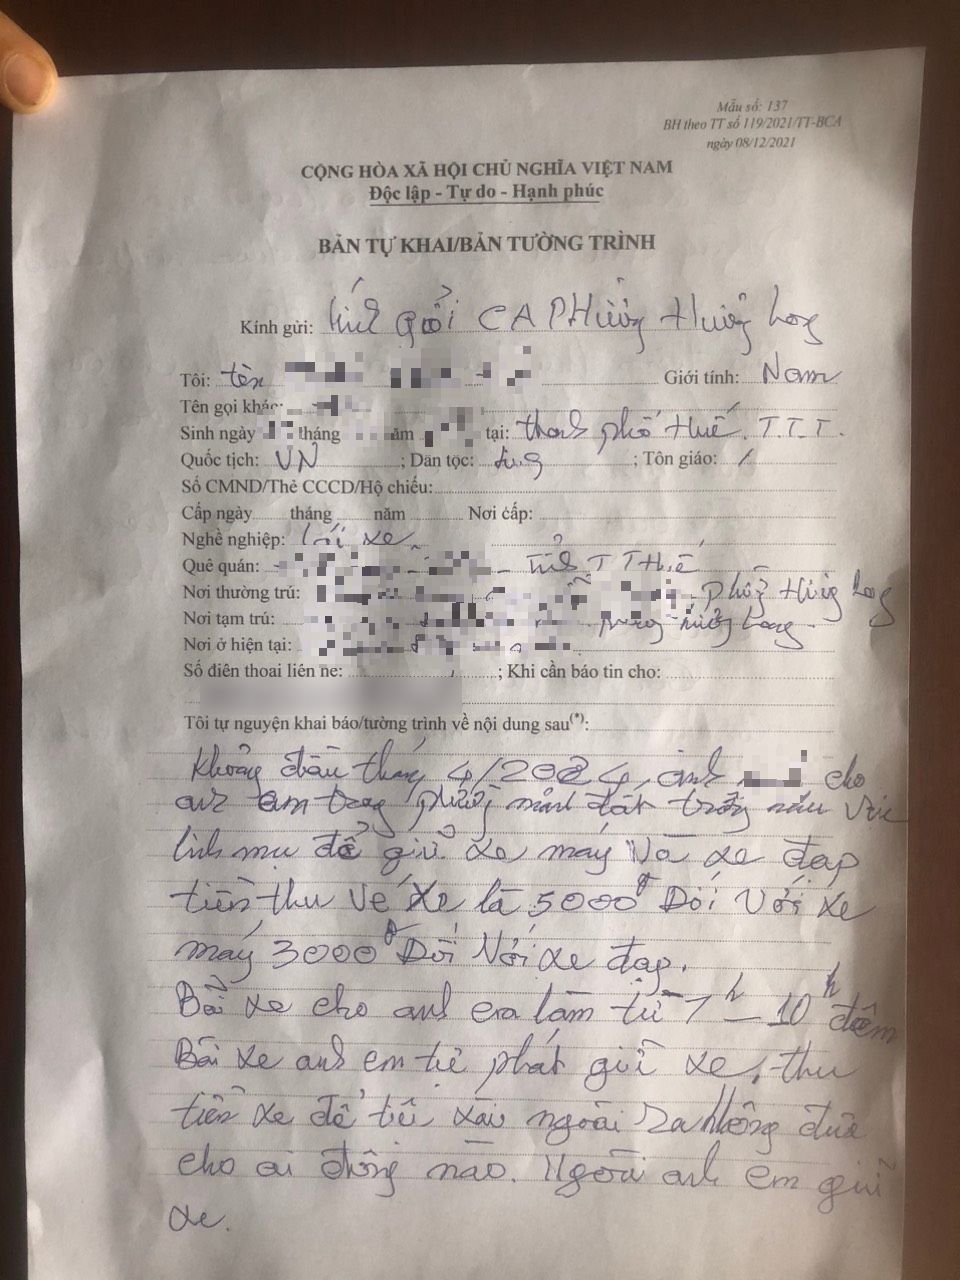 Mẫu số: 137
BH theo TT số 119/2021/TT-BCA
ngày 08/12/2021
CỘNG HÒA XÃ HỘI CHỦ NGHĨA VIỆT NAM
Độc lập - Tự do - Hạnh phúc
BẢN TỰ KHAI/BẢN TƯỜNG TRÌNH
Kính gửi: Kính gửi CA Phường Hương Long
Tôi: tên Giới tính: Nam
Tên gọi khác:
Sinh ngày tháng năm tại: thành phố Huế. T.T.T.
Quốc tịch: VN ; Dân tộc: ; Tôn giáo: /
Số CMND/Thẻ CCCD/Hộ chiếu:
Cấp ngày tháng năm Nơi cấp:
Nghề nghiệp: lái xe
Quê quán: Tỉnh TT Huế
Nơi thường trú: Long
Nơi tạm trú: phường Hương Long
Nơi ở hiện tại:
Số điện thoại liên hệ: ; Khi cần báo tin cho:
Tôi tự nguyện khai báo/tường trình về nội dung sau(*):
Khoảng đầu tháng 4/2024, anh cho
anh em trong phường đất trống
linh mụ để giữ xe máy Và xe đạp
tiền thu Vé Xe là 5000đ Đối Với xe
máy 3000đ Đối Với xe đạp.
Bãi xe cho anh em làm từ 7h - 10h đêm
Bãi xe anh em tự phát giữ xe, thu
tiền xe để tiêu xài ngoài ra không đưa
cho ai đồng nào. Ngoài anh em giữ
xe.